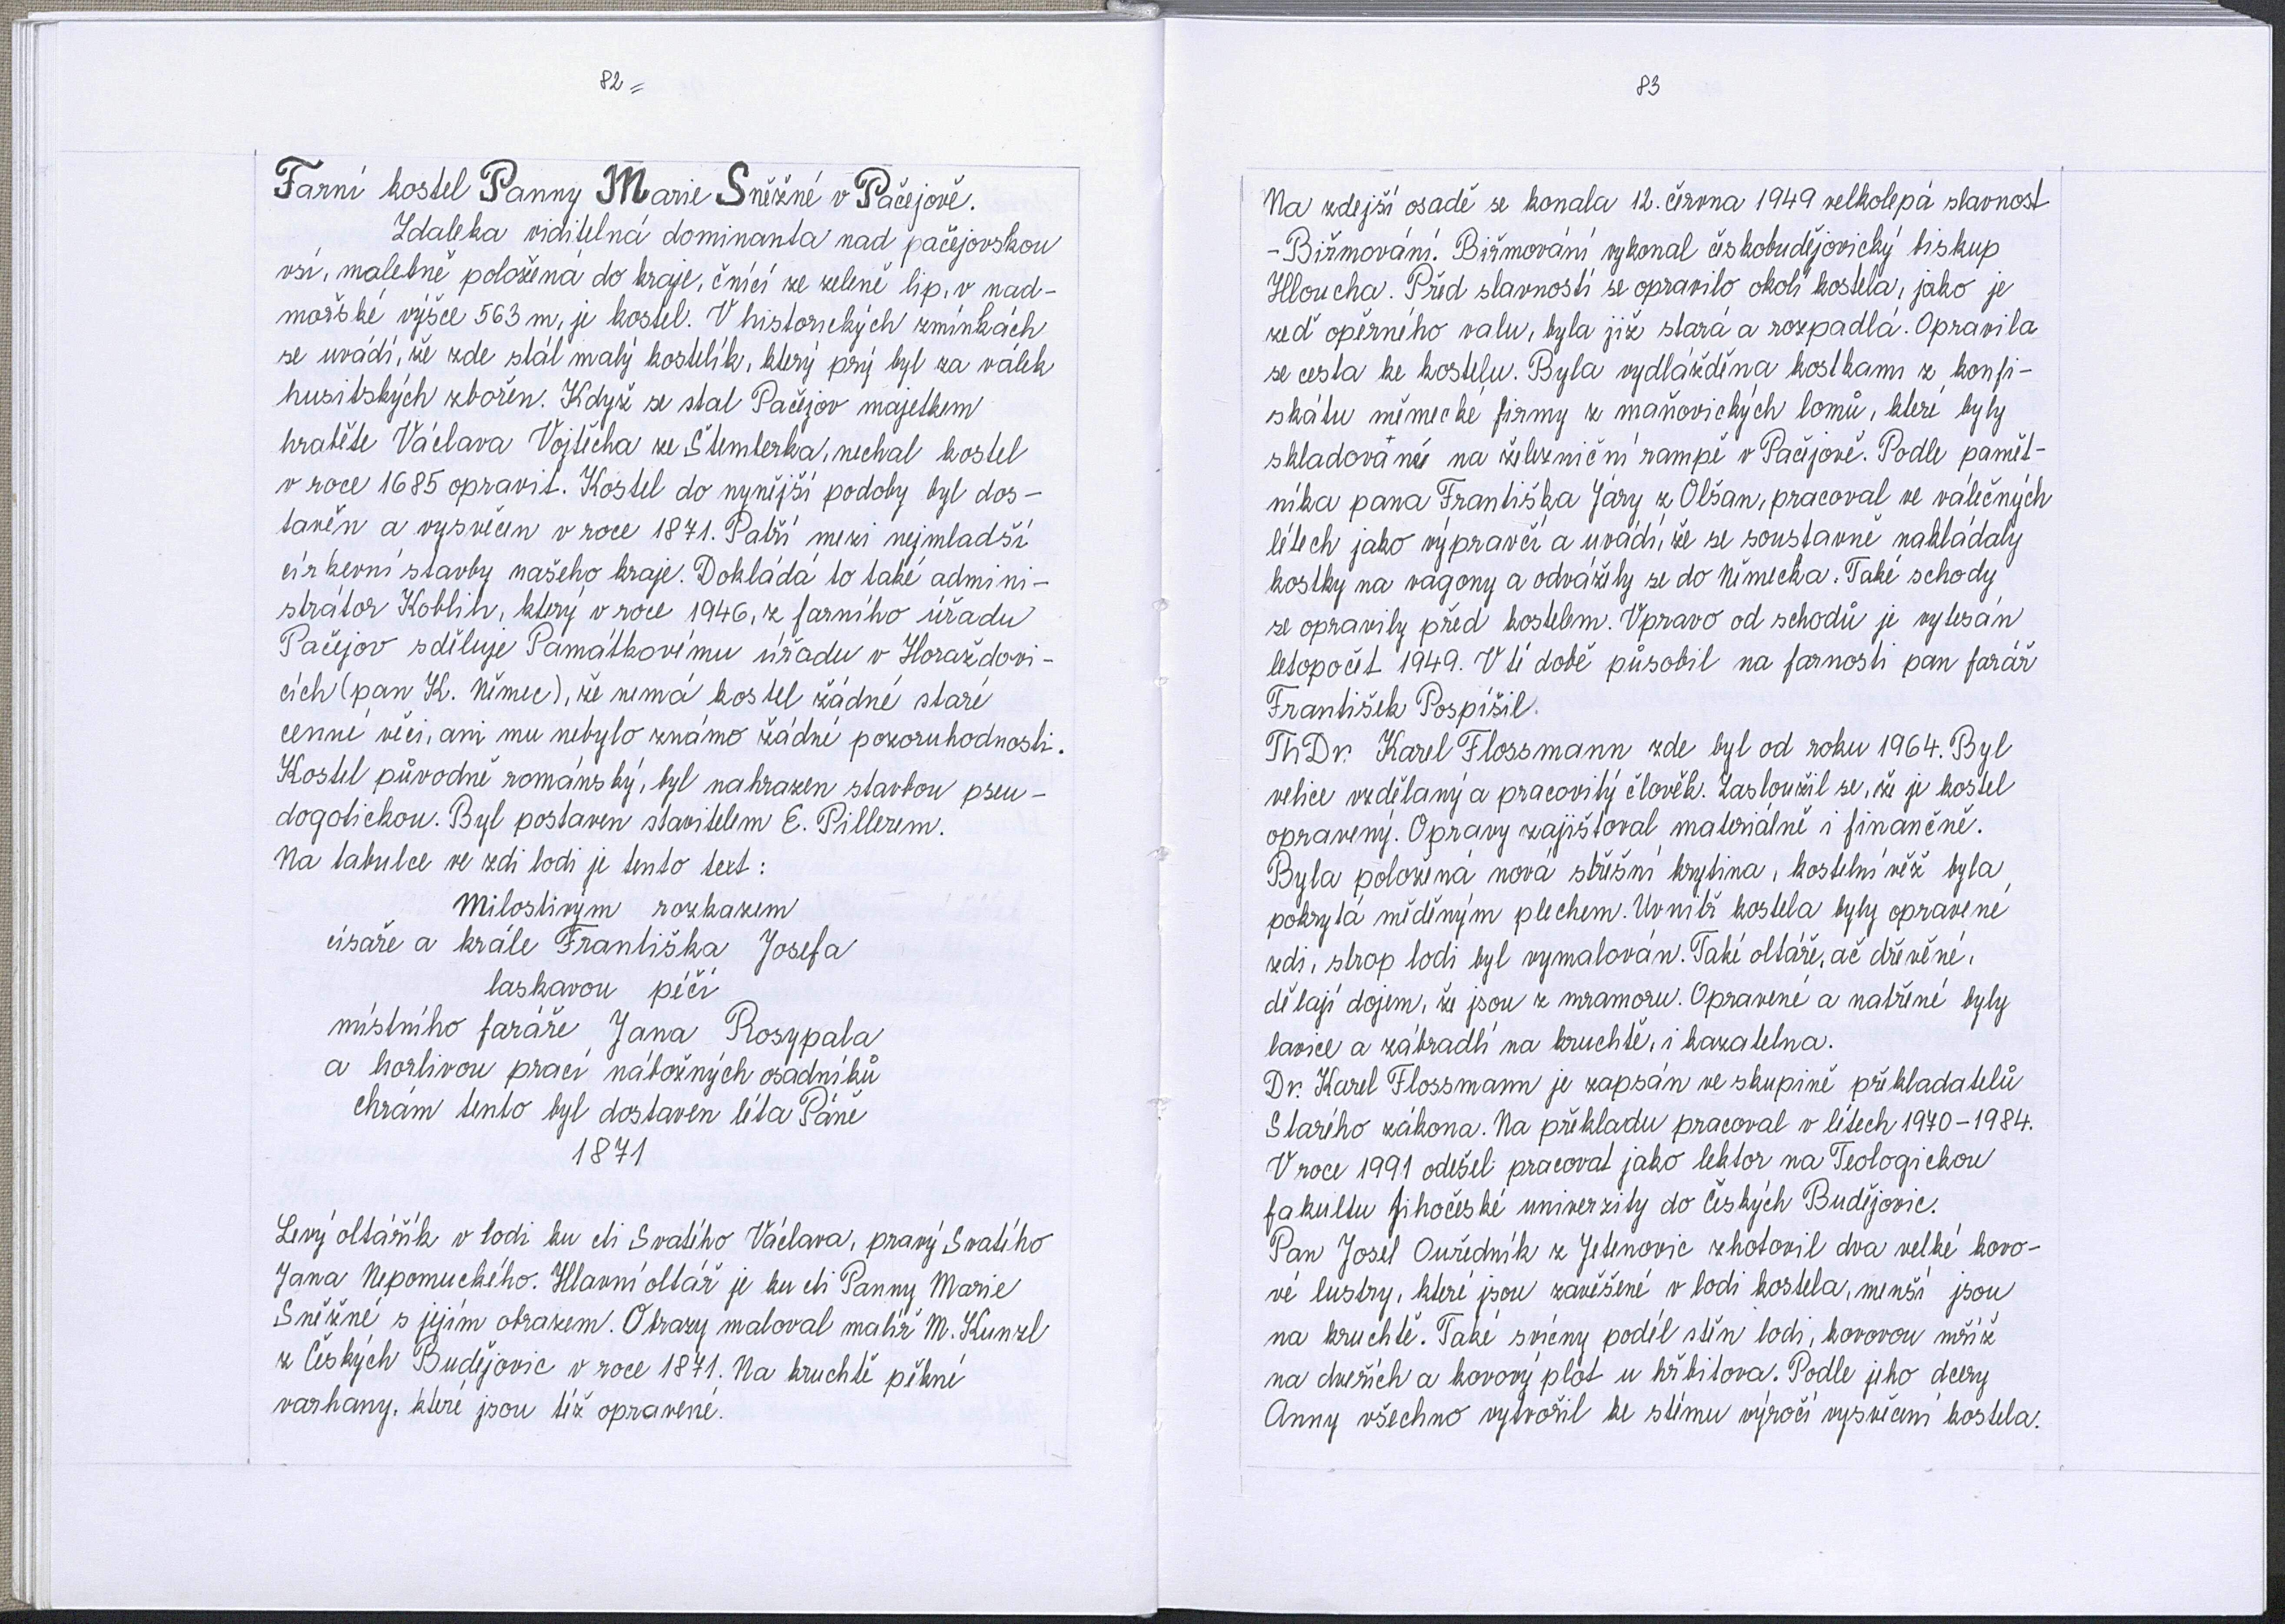 82
Farní kostel Panny Marie Sněžné v Pačejově.
Zdaleka viditelná dominanta nad pačejovskou
vsí, malebně položená do kraje, čnící ze zeleně lip, v nad-
mořské výšce 563 m, je kostel. V historických zmínkách
se uvádí, že zde stál malý kostelík, který prý byl za válek
husitských zbořen. Když se stal Pačejov majetkem
hraběte Václava Vojtěcha ze Šternberka, nechal kostel
v roce 1685 opravit. Kostel do nynější podoby byl dos-
tavěn a vysvěcen v roce 1871. Patří mezi nejmladší
církevní stavby našeho kraje. Dokládá to také admini-
strátor Koblih, který v roce 1946, z farního úřadu
Pačejov sděluje Památkovému úřadu v Horažďovi-
cích (pan K. Němec), že nemá kostel žádné staré
cenné věci, ani mu nebylo známo žádné pozoruhodnosti.
Kostel původně románský, byl nahrazen stavbou pseu-
dogotickou. Byl postaven stavitelem E. Pillerem.
Na tabulce ve zdi lodi je tento text:
Milostivým rozkazem
císaře a krále Františka Josefa
laskavou péčí
místního faráře Jana Rosypala
a horlivou prací nábožných osadníků
chrám tento byl dostaven léta Páně
1871
Levý oltářík v lodi ku cti Svatého Václava, pravý Svatého
Jana Nepomuckého. Hlavní oltář je ku cti Panny Marie
Sněžné s jejím obrazem. Obrazy maloval malíř M. Kunzl
z Českých Budějovic v roce 1871. Na kruchtě pěkné
varhany, které jsou též opravené.
83
Na zdejší osadě se konala 12. června 1949 velkolepá slavnost
- Biřmování. Biřmování vykonal českobudějovický biskup
Hloucha. Před slavností se opravilo okolí kostela, jako je
zeď opěrného valu, byla již stará a rozpadlá. Opravila
se cesta ke kostelu. Byla vydlážděna kostkami z konfi-
skátu německé firmy z maňovických lomů, které byly
skladované na železniční rampě v Pačejově. Podle pamět-
níka pana Františka Járy z Olšan, pracoval ve válečných
létech jako výpravčí a uvádí, že se soustavně nakládaly
kostky na vagony a odvážely se do Německa. Také schody
se opravily před kostelem. Vpravo od schodů je vytesán
letopočet 1949. V té době působil na farnosti pan farář
František Pospíšil.
ThDr. Karel Flossmann zde byl od roku 1964. Byl
velice vzdělaný a pracovitý člověk. Zasloužil se, že je kostel
opravený. Opravy zajišťoval materiálně i finančně.
Byla položená nová střešní krytina, kostelní věž byla
pokrytá měděným plechem. Uvnitř kostela byly opravené
zdi, strop lodi byl vymalován. Také oltáře, ač dřevěné,
dělají dojem, že jsou z mramoru. Opravené a natřené byly
lavice a zábradlí na kruchtě, i kazatelna.
Dr. Karel Flossmann je zapsán ve skupině překladatelů
Starého zákona. Na překladu pracoval v létech 1970-1984.
V roce 1991 odešel pracovat jako lektor na Teologickou
fakultu Jihočeské univerzity do Českých Budějovic.
Pan Josef Ouředník z Jetenovic zhotovil dva velké kovo-
vé lustry, které jsou zavěšené v lodi kostela, menší jsou
na kruchtě. Také svícny podél stěn lodi, kovovou mříž
na dveřích a kovový plot u hřbitova. Podle jeho dcery
Anny všechno vytvořil ke stému výročí vysvěcení kostela.